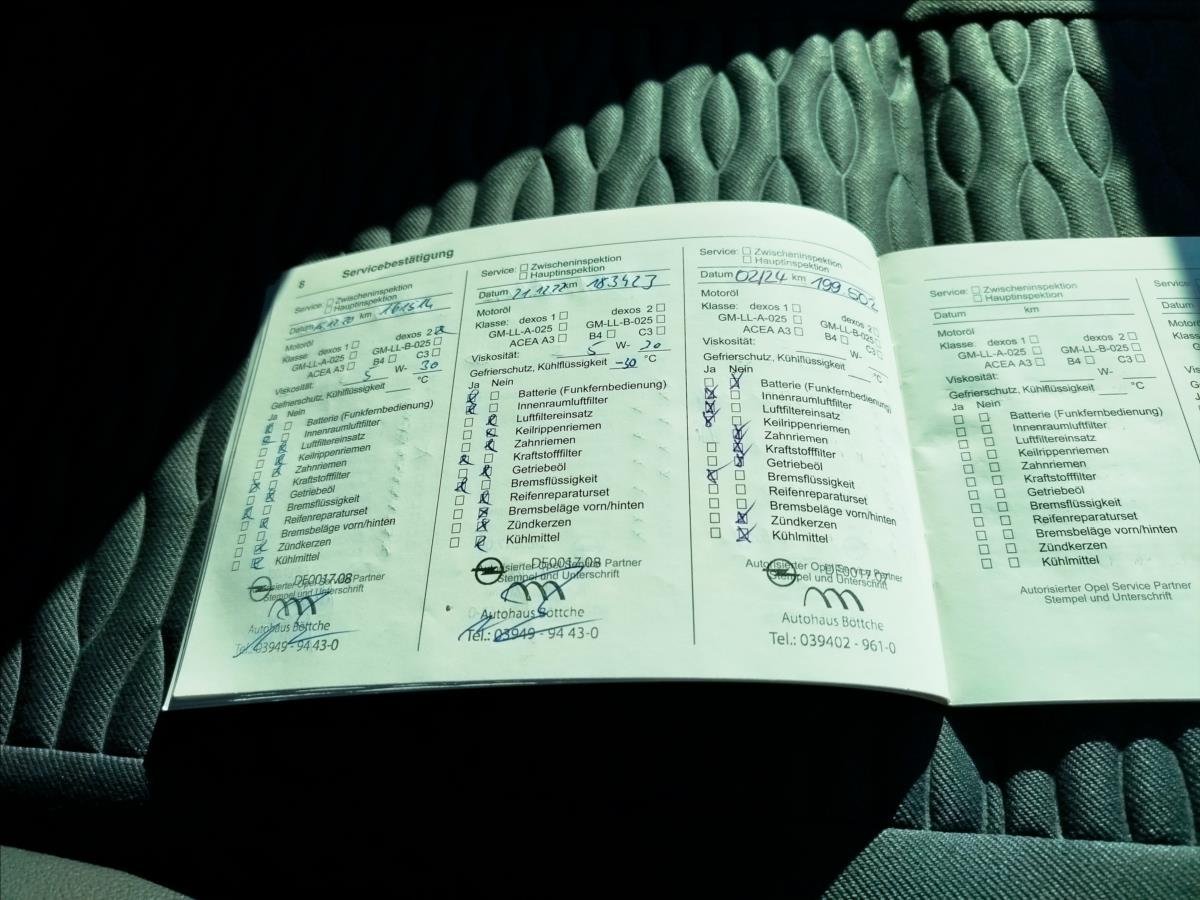 8 Servicebestätigung
Service: Zwischeninspektion
Hauptinspektion
Datum km 161514
Motoröl
Klasse: dexos 1 dexos 2
GM-LL-A-025 GM-LL-B-025
ACEA A3 B4 C3
Viskosität: 5 W- 30
Gefrierschutz, Kühlflüssigkeit °C
Ja Nein
Batterie (Funkfernbedienung)
Innenraumluftfilter
Luftfiltereinsatz
Keilrippenriemen
Zahnriemen
Kraftstofffilter
Getriebeöl
Bremsflüssigkeit
Reifenreparaturset
Bremsbeläge vorn/hinten
Zündkerzen
Kühlmittel
DE0017.08
Autorisierter Opel Service Partner
Stempel und Unterschrift
Autohaus Böttche
Tel.: 03949 - 94 43-0
Service: Zwischeninspektion
Hauptinspektion
Datum 21.12.22 km 183423
Motoröl
Klasse: dexos 1 dexos 2
GM-LL-A-025 GM-LL-B-025
ACEA A3 B4 C3
Viskosität: 5 W- 30
Gefrierschutz, Kühlflüssigkeit -30 °C
Ja Nein
Batterie (Funkfernbedienung)
Innenraumluftfilter
Luftfiltereinsatz
Keilrippenriemen
Zahnriemen
Kraftstofffilter
Getriebeöl
Bremsflüssigkeit
Reifenreparaturset
Bremsbeläge vorn/hinten
Zündkerzen
Kühlmittel
DE0017.08
Autorisierter Opel Service Partner
Stempel und Unterschrift
Autohaus Böttche
Tel.: 03949 - 94 43-0
Service: Zwischeninspektion
Hauptinspektion
Datum 02/24 km 199 602
Motoröl
Klasse: dexos 1 dexos 2
GM-LL-A-025 GM-LL-B-025
ACEA A3 B4 C3
Viskosität: W-
Gefrierschutz, Kühlflüssigkeit °C
Ja Nein
Batterie (Funkfernbedienung)
Innenraumluftfilter
Luftfiltereinsatz
Keilrippenriemen
Zahnriemen
Kraftstofffilter
Getriebeöl
Bremsflüssigkeit
Reifenreparaturset
Bremsbeläge vorn/hinten
Zündkerzen
Kühlmittel
Autorisierter Opel Service Partner
Stempel und Unterschrift
Autohaus Böttche
Tel.: 039402 - 961-0
Service: Zwischeninspektion
Hauptinspektion
Datum km
Motoröl
Klasse: dexos 1 dexos 2
GM-LL-A-025 GM-LL-B-025
ACEA A3 B4 C3
Viskosität: W-
Gefrierschutz, Kühlflüssigkeit °C
Ja Nein
Batterie (Funkfernbedienung)
Innenraumluftfilter
Luftfiltereinsatz
Keilrippenriemen
Zahnriemen
Kraftstofffilter
Getriebeöl
Bremsflüssigkeit
Reifenreparaturset
Bremsbeläge vorn/hinten
Zündkerzen
Kühlmittel
Autorisierter Opel Service Partner
Stempel und Unterschrift